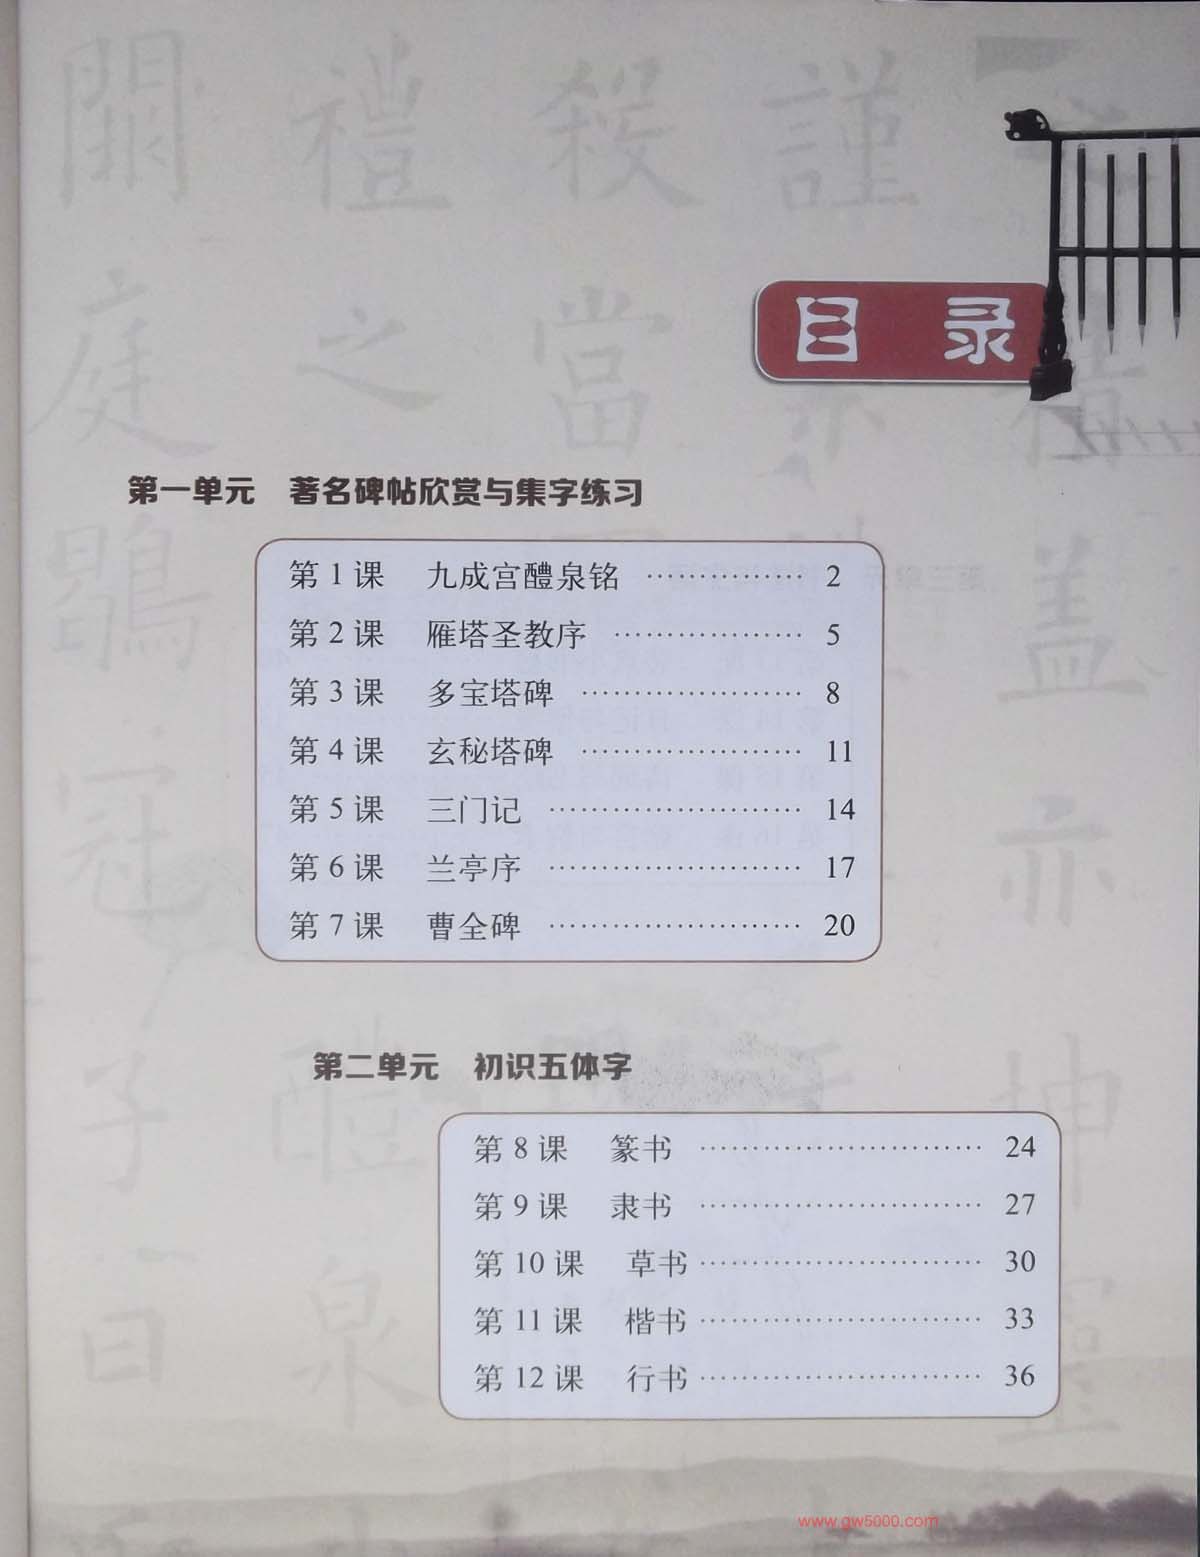 目 录
第一单元 著名碑帖欣赏与集字练习
第 1 课 九成宫醴泉铭 …………… 2
第 2 课 雁塔圣教序 ……………… 5
第 3 课 多宝塔碑 ………………… 8
第 4 课 玄秘塔碑 ………………… 11
第 5 课 三门记 …………………… 14
第 6 课 兰亭序 …………………… 17
第 7 课 曹全碑 …………………… 20
第二单元 初识五体字
第 8 课 篆书 ……………………… 24
第 9 课 隶书 ……………………… 27
第 10 课 草书 ……………………… 30
第 11 课 楷书 ……………………… 33
第 12 课 行书 ……………………… 36
www.gw5000.com